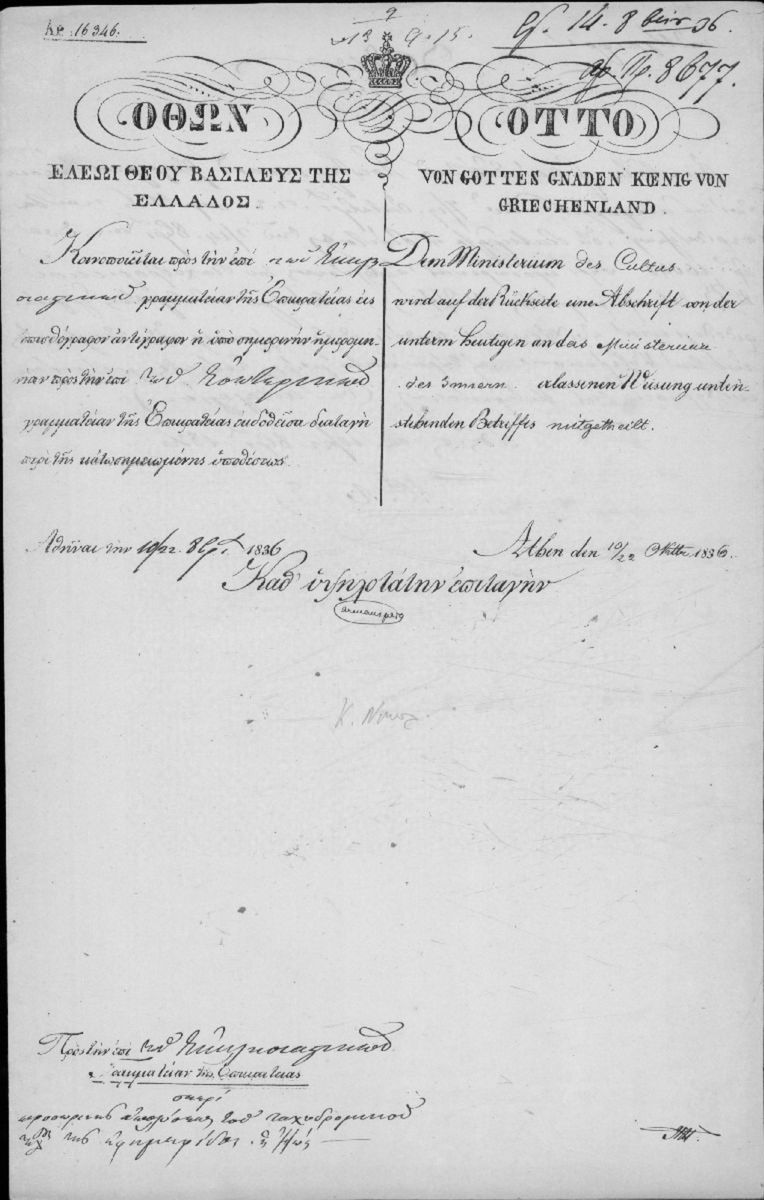 16346.
14. 8
36.
8677.
ΟΘΩΝ
ΕΛΕΩΙ ΘΕΟΥ ΒΑΣΙΛΕΥΣ ΤΗΣ
ΕΛΛΑΔΟΣ.
Κοινοποιεῖται πρὸς τὴν ἐπὶ τῶν Ἐκκλη
σιαστικῶν γραμματείαν τῆς Ἐπικρατείας εἰς
ὀπισθόγραφον ἀντίγραφον ἡ ὑπὸ σημερινὴν ἡμερομη-
νίαν πρὸς τὴν ἐπὶ τῶν Ἐσωτερικῶν
γραμματείαν τῆς Ἐπικρατείας ἐκδοθεῖσα διαταγὴ
περὶ τῆς κάτω σημειωμένης ὑποθέσεως.
Ἀθῆναι τὴν 10/22. 1836
OTTO
VON GOTTES GNADEN KŒNIG VON
GRIECHENLAND.
Dem Ministerium des Cultus
wird auf der Rückseite eine Abschrift von der
unterm heutigen an das Ministerium
des Innern erlassenen Weisung unten-
stehenden Betreffes mitgetheilt.
Athen den 10/22 1836.
Καθ' ὑψηλοτάτην ἐπιταγὴν
Πρὸς τὴν ἐπὶ τῶν Ἐκκλησιαστικῶν
Γραμματείαν τῆς Ἐπικρατείας
περὶ
τοῦ ταχυδρομικοῦ
τῆς ἐφημερίδος